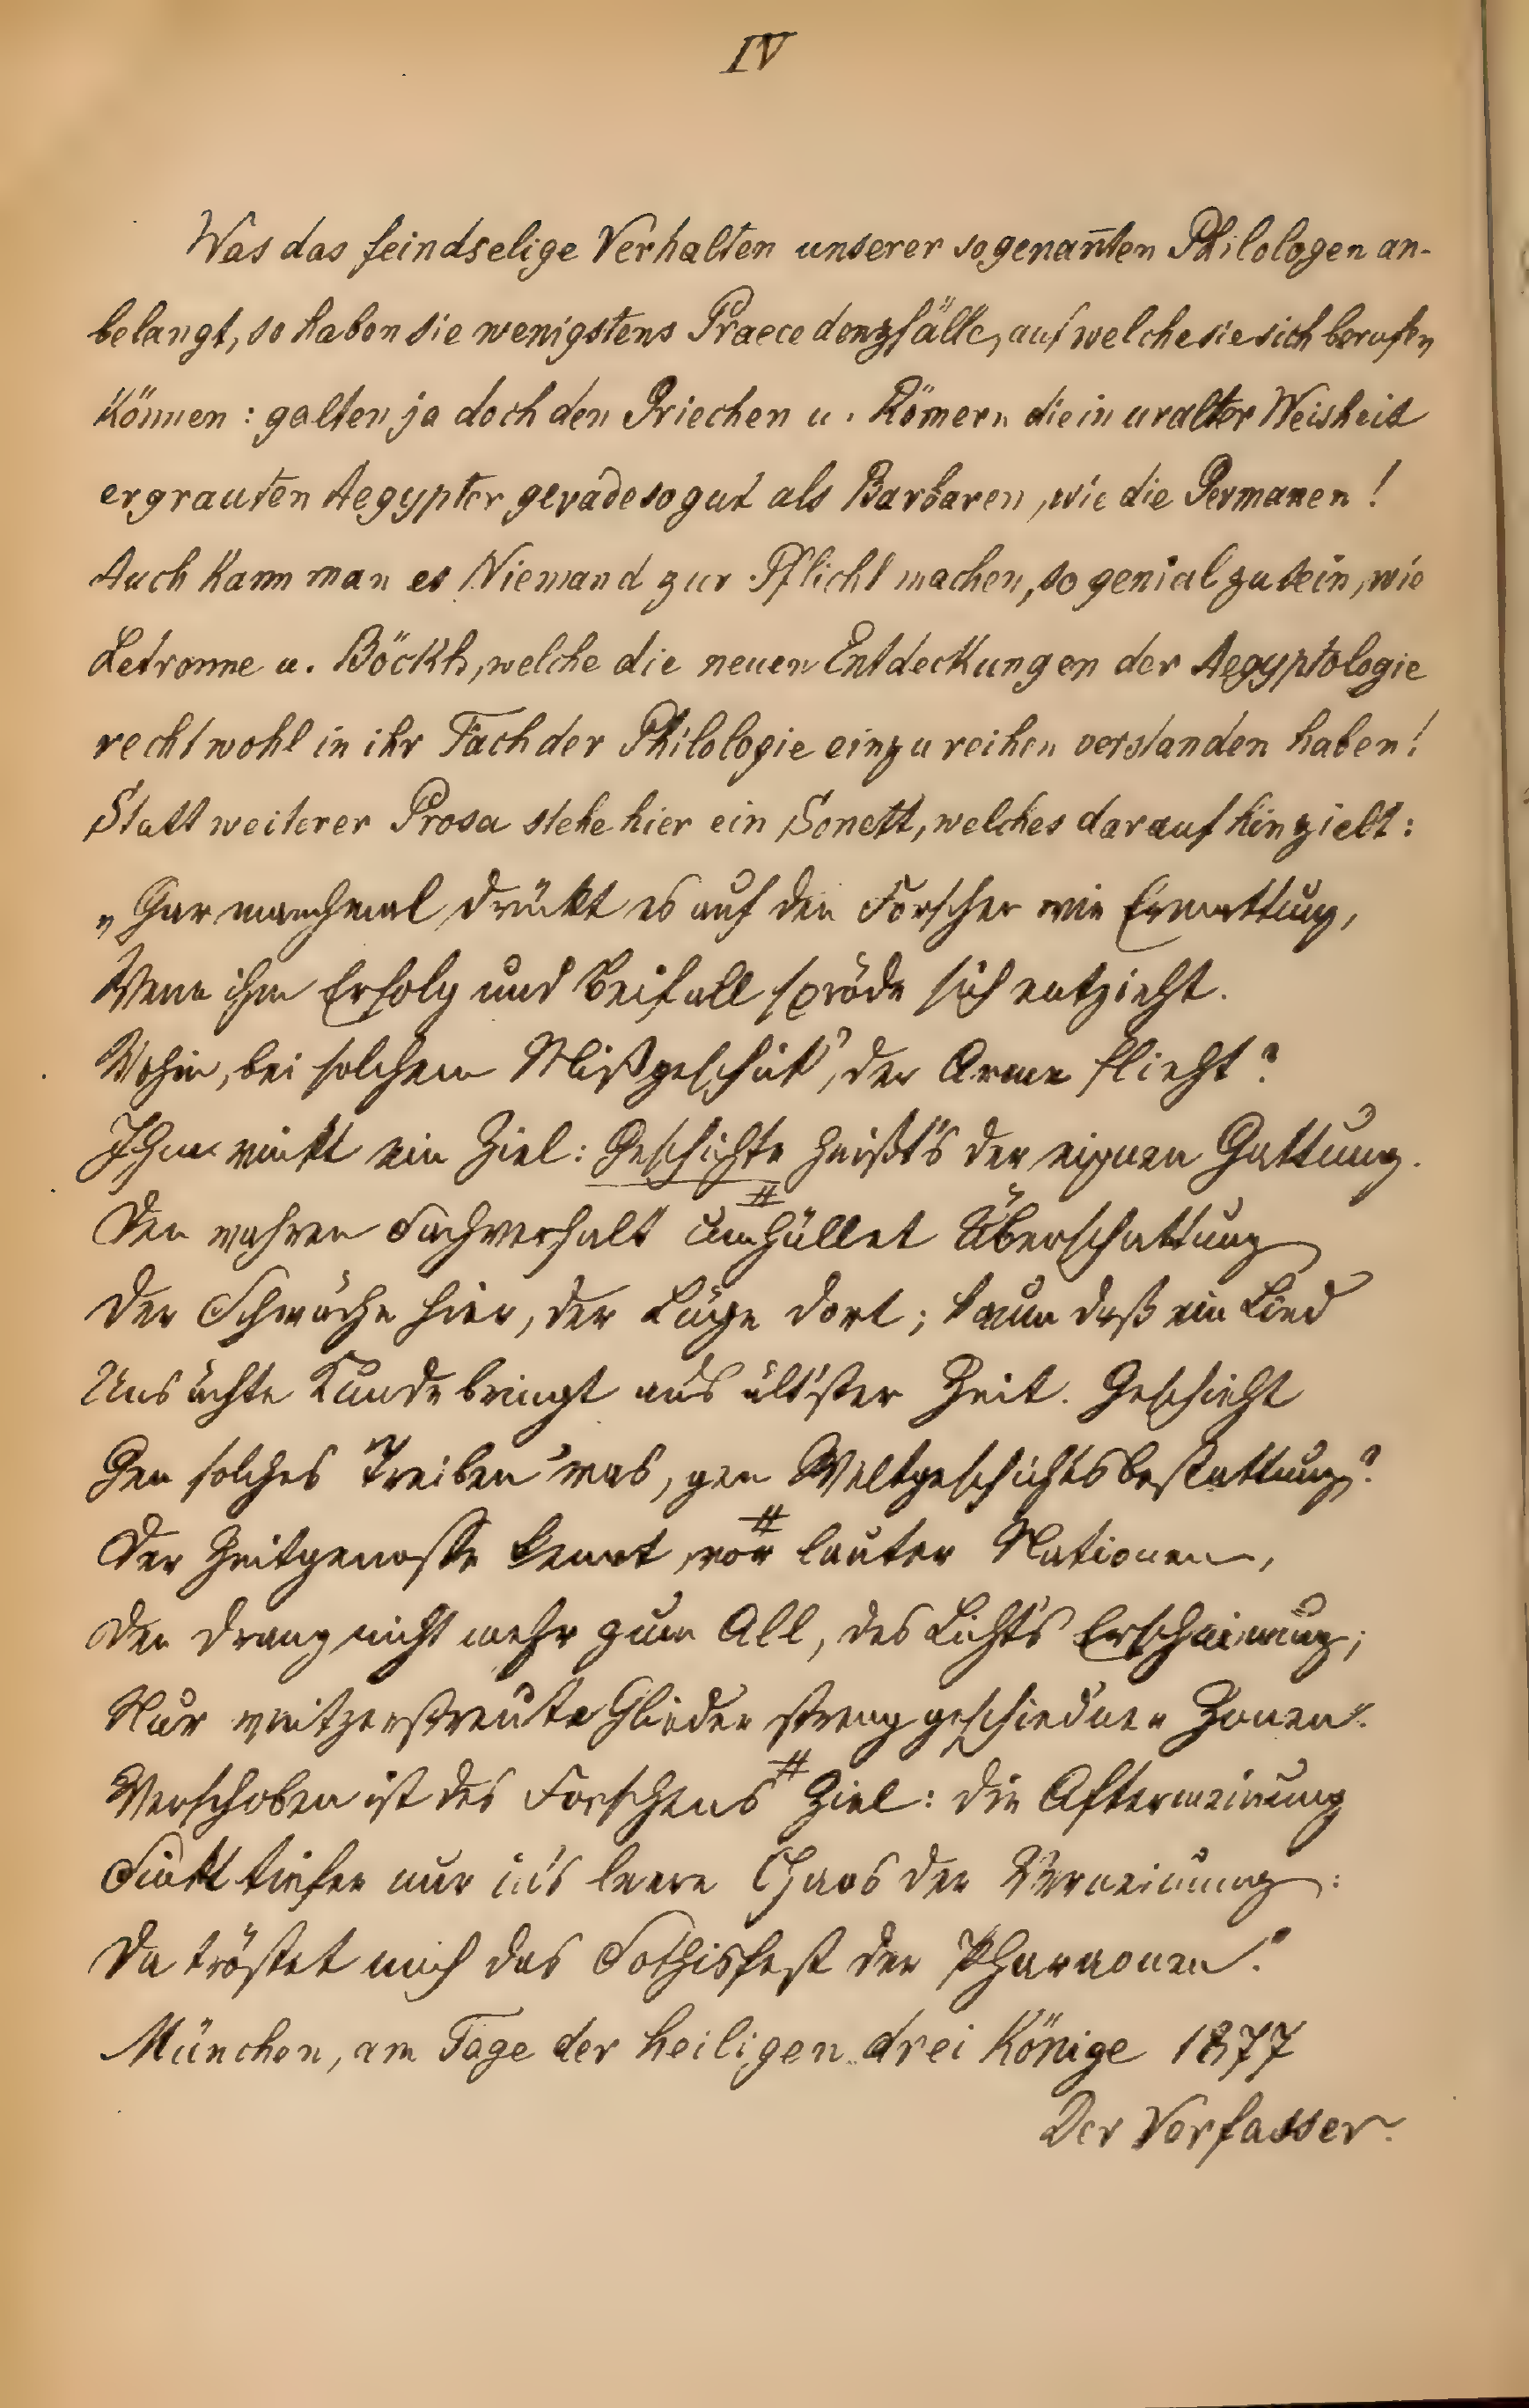 IV
Was das feindselige Verhalten unserer sogenan̄ten Philologen an-
belangt, so haben sie wenigstens Praecedenzfälle, auf welche sie sich berufen
können: galten ja doch den Griechen u. Römern die in uralter Weisheit
ergrauten Aegypter geradeso gut als Barbaren, wie die Germanen!
Auch kann man es Niemand zur Pflicht machen, so genial zu sein, wie
Letronne u. Böckh, welche die neuen Entdeckungen der Aegyptologie
recht wohl in ihr Fach der Philologie einzureihen verstanden haben!
Statt weiterer Prosa stehe hier ein Sonett, welches darauf hinzielt:
„Gar manchmal drückt es auf den Forscher wie Ermattung,
Wenn ihm Erfolg und Beifall spröde sich entzieht.
Wohin, bei solchem Mißgeschick, der Arme flieht?
Ihm winkt ein Ziel: Geschichte heißt's der eignen Gattung.
Den wahren Sachverhalt umhüllet Überschattung
Der Schwäche hier, der Lüge dort; kaum daß ein Lied
Uns ächte Kunde bringt aus ält'ster Zeit. Geschieht
Gen solches Treiben 'was, gen Weltgeschichtsbestattung?
Der Zeitgenosse kennt, vor lauter Nationen,
Den Drang nicht mehr zum All, des Lichts Erscheinung;
Nur weitzerstreute Glieder streng geschiedner Zonen.
Verschoben ist des Forschens Ziel: die Aftermeinung
Sinkt tiefer nur in's leere Chaos der Verneinung:
Da tröstet mich das Sothisfest der Pharaonen."
München, am Tage der heiligen drei Könige 1877
Der Verfasser.